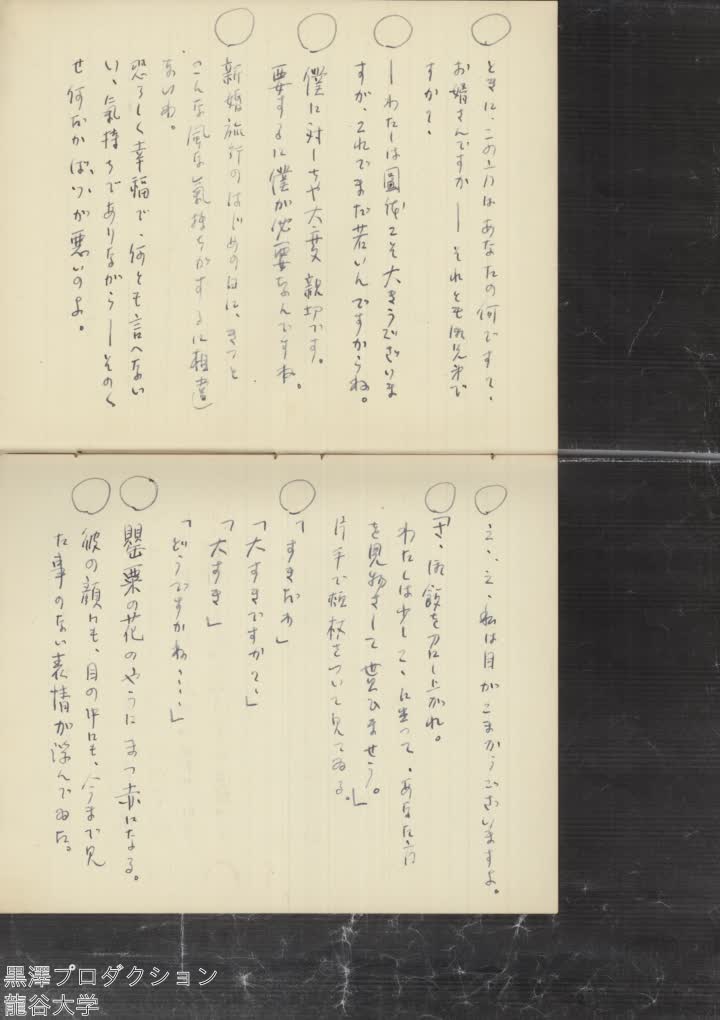 ○ ときに、この方はあなたの何ですて、
お婿さんですか ― それとも御兄弟で
すかて、
○ ― わたしは図体こそ大きうございま
すが、これでまだ若いんですからね。
○ 僕に対しちや大変親切です。
要するに僕が必要なんですね。
○ 新婚旅行のはじめの日に、きつと
こんな風な気持ちがするに相違
ないわ。
恐ろしく幸福で、何とも言へない
いゝ気持ちでありながら ― そのく
せ何だかばつが悪いのよ。
○ えゝ、え、私は目がこまかうございますよ。
○ 「さ、御飯を召し上がれ。
わたしは少しこゝに坐つて、あなた方
を見物さして貰ひませう。」
片手で頬杖をついて見てゐる。
○ 「すきだわ」
「大すきですか?」
「大すき」
「どうですかね・・・・」
○ 罌粟の花のやうにまつ赤になる。
○ 彼の顔にも、目の中にも、今まで見
た事のない表情が浮んでゐた。
黒澤プロダクション
龍谷大学